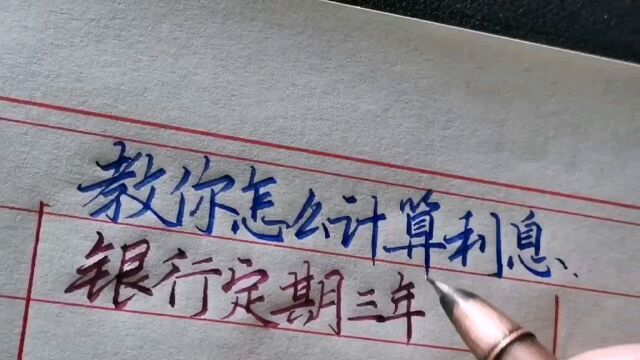 教你怎么计算利息.
银行定期三年